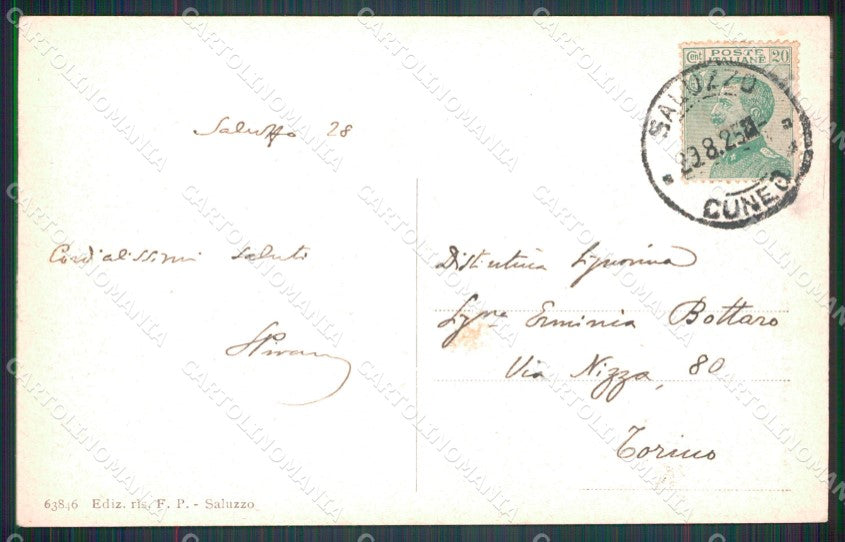 POSTE
ITALIANE
Cent 20
SALUZZO
29.8.25
CUNEO
Saluzzo 28
Cordialissimi saluti
Distintissima Signorina
Sig.na Erminia Bottaro
Via Nizza, 80
Torino
63846 Ediz. ris. F. P. - Saluzzo
CARTOLINOMANIA